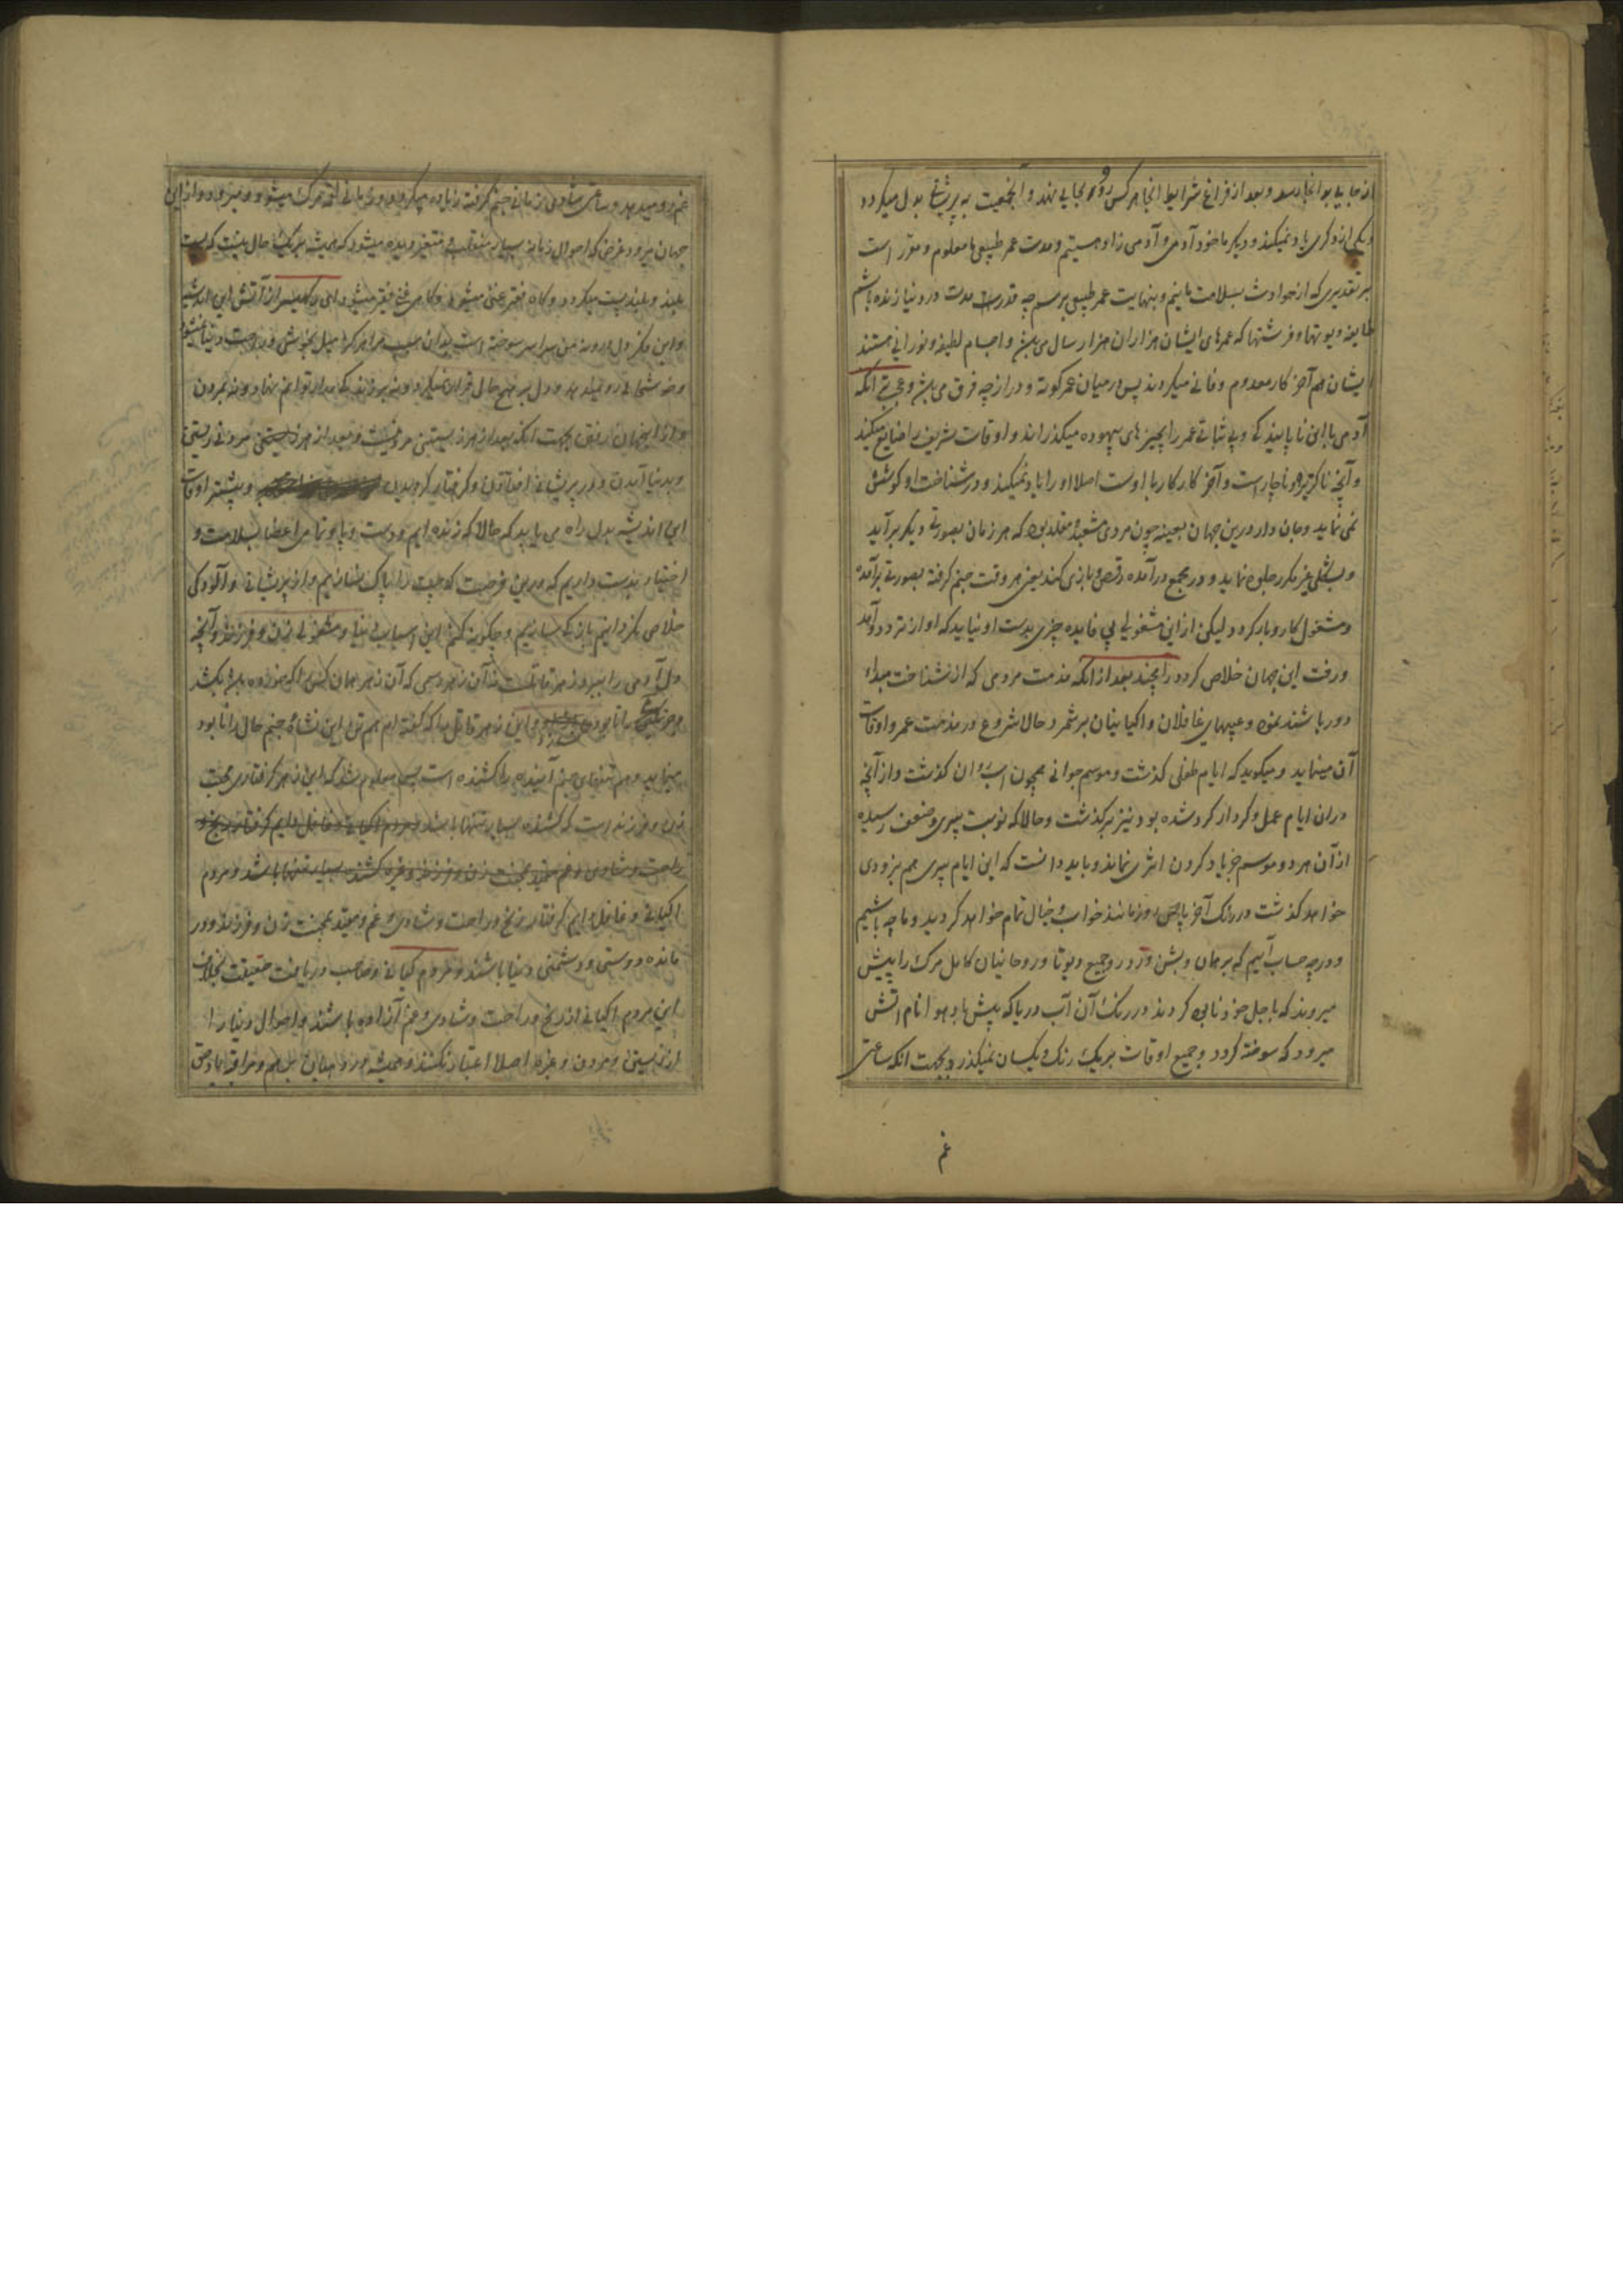 از جایی بوانجا رسد و بعد از فراغ شرایط انجا هر کس رو بجایی نهند و آنجمعیت به پریشانی بدل میکردد
و یکی از دکری یاد نمیکند و دیکر ما خود آدمی و آدمی زاد هستیم و مدت عمر طبیعی ما معلوم و مقرر است
بر تقدیری که از حوادث بسلامت مانیم و بنهایت عمر طبیعی برسم چه قدر مدت در دنیا زنده باشم
طایفه دیوتها و فرشتها که عمرهای ایشان هزاران هزار سال می باشد و اجسام لطیف و نورانی هستند
ایشان هم آخر کار معدوم و فانی میکردند پس در میان عمر کوته و دراز چه فرق می باشد و عجب تر انکه
آدمی با این ناپایندکی و بی ثباتی عمر را بچیزهای بیهوده میکذراند و اوقات شریف را ضایع میکند
و آنچه ناکزیر و ناچار است و آخر کار کار با اوست اصلا او را یاد نمیکند و در شناخت او کوشش
نمی نماید و جان دار درین جهان بعینه چون مردی مشعبد مقلد بود که هر زمان بصورتی دیکر برآید
و بشکلی غیر مکرر جلوه نماید و در مجمع درآمده رقص و بازی کند یعنی هر وقت جنم کرفته بصورتی برآمده
و مشغول کار و بار کردد لیکن از این مشغولی بی فایده چیزی بدست او نیاید که او از تردد و آمد
و رفت این جهان خلاص کردد رامچند بعد از انکه مذمت مردمی که از شناخت مبداء
دور باشند نمود و عیبهای غافلان و اکیانیان بر شمرد حالا شروع در مذمت عمر و اوقات
آن مینماید و میکوید که ایام طفلی کذشت و موسم جوانی همچون اسب دوان کذشت و از آنچه
در ان ایام عمل و کردار کرد شده بود نیز بر کذشت و حالا که نوبت پیری و ضعف رسیده
از آن هر دو موسم جز یاد کردن اثری نماند و باید دانست که این ایام پیری هم بزودی
خواهد کذشت و در رنک آخر مانند خواب و خیال تمام خواهد کردید و ما چه باشیم
و در چه حساب آییم که برهمان و بشن و رودر و جمیع دیوتا و روحانیان کامل مرک را پیش
میروند که باجل خود نابود کردند در رنک آن آب دریا که پیش بدهوا نام آتش
میرود که سوخته کردد و جمیع اوقات بر یک رنک و یکسان نمیکذرد بجهت انکه ساعتی
غم
غم رو میدهد و ساعتی شادی زمانی جنم کرفته زیاده میکردد و زمانی لقمه مرک میشود و میمیرد و از این
جهان میرود غرض که احوال زمانه بسیار منقلب و متغیر دیده میشود که همیشه بر یک حال نیست که پست
بلند و بلند پست میکردد و کاه فقیر غنی میشود و کاهی غنی فقیر میشود ای از آتش این اندیشه
و این فکر دل و درون من سراسر سوخته است بدان سبب مرا هرکز میل بخوشی و راحت دنیا نمیشود
و خوشحالی رو نمیدهد و دل بر هیچ حال قرار نمیکیرد و نه بر زندکی مدار توانم نهاد و نه بمردن
و از این جهان رفتن بجهت انکه بعد از هر زیستنی مردنیست و بعد از هر مردنی زیستنی
و بدنیا آمدن و در پریشانی افتادن و کرفتار کردیدن و بیشتر اوقات
این اندیشه بدل راه می یابد که حالا که زنده ایم و دست و پا و تمامی اعضا بسلامت و
اختیار بدست داریم که درین فرصت که چیت را پاک نسازیم و از پریشانی و آلودکی
خلاص نکردانیم باز کی سازیم و چکونه کنم این اسباب دنیا و مشغولی زن و فرزند و آنچه
دل آدمی را ببرد زهر قاتلست نه آن زهر رسمی که آن زهر همان کس را که خورده باشد بکشد
و این زهر قاتل ما که کفته ام هم تن این نشاه جنم حال را نابود
مینماید و هم تنهای جنم آینده را کشنده است پس معلوم شد که این زهر کرفتاری محبت
زن و فرزند است که کشنده بسیار تنها باشد و مردم اکیانی و غافل دایم کرفتار رنج و
راحت و شادی و غم و مقید محبت زن و فرزند و غیره کشنده بسیار تنها باشد و مردم
اکیانی و غافل دایم کرفتار رنج و راحت و شادی و غم و مقید محبت زن و فرزند و در
مانده دوستی و دشمنی دنیا باشند و مردم کیانی و صاحب دریافت حقیقت بخلاف
این مردم اکیانی از رنج و راحت و شادی و غم آزاده باشند و احوال دنیا را
از زیستن و مردن و غیره اصلا اعتبار نکنند و همیشه